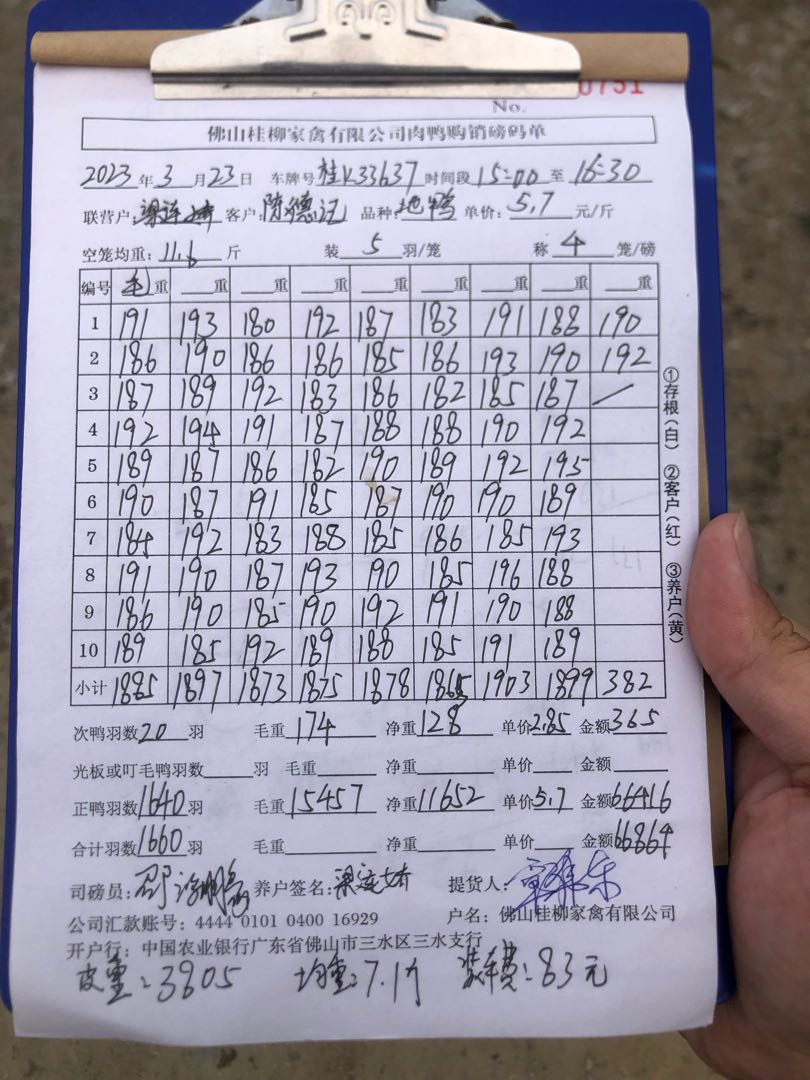 0751
No.
佛山桂柳家禽有限公司肉鸭购销磅码单
2023年3月23日 车牌号桂K33637时间段15:00至16:30
联营户: 客户:陈德 品种:地鸭 单价:5.7元/斤
空笼均重:11.6斤 装5羽/笼 称4笼/磅
编号 毛重 重 重 重 重 重 重 重 重
1 191 193 180 192 187 183 191 188 190
2 186 190 186 186 185 186 193 190 192
3 187 189 192 183 186 182 185 187 /
4 192 194 191 187 188 188 190 192
5 189 187 186 182 190 189 192 195
6 190 187 191 185 187 190 190 189
7 184 192 183 188 185 186 185 193
8 191 190 187 193 190 185 196 188
9 186 190 185 190 192 191 190 188
10 189 185 192 189 188 185 191 189
小计 1885 1897 1873 1875 1878 1865 1903 1899 382
次鸭羽数20羽 毛重174 净重128 单价2.85 金额365
光板或叮毛鸭羽数 羽 毛重 净重 单价 金额
正鸭羽数1640羽 毛重15457 净重11652 单价5.7 金额66416
合计羽数1660羽 毛重 净重 单价 金额66864
司磅员: 养户签名: 提货人:
公司汇款账号:4444 0101 0400 16929 户名:佛山桂柳家禽有限公司
开户行:中国农业银行广东省佛山市三水区三水支行
皮重:3805 均重:7.1斤 装车费:83元
①存根(白) ②客户(红) ③养户(黄)